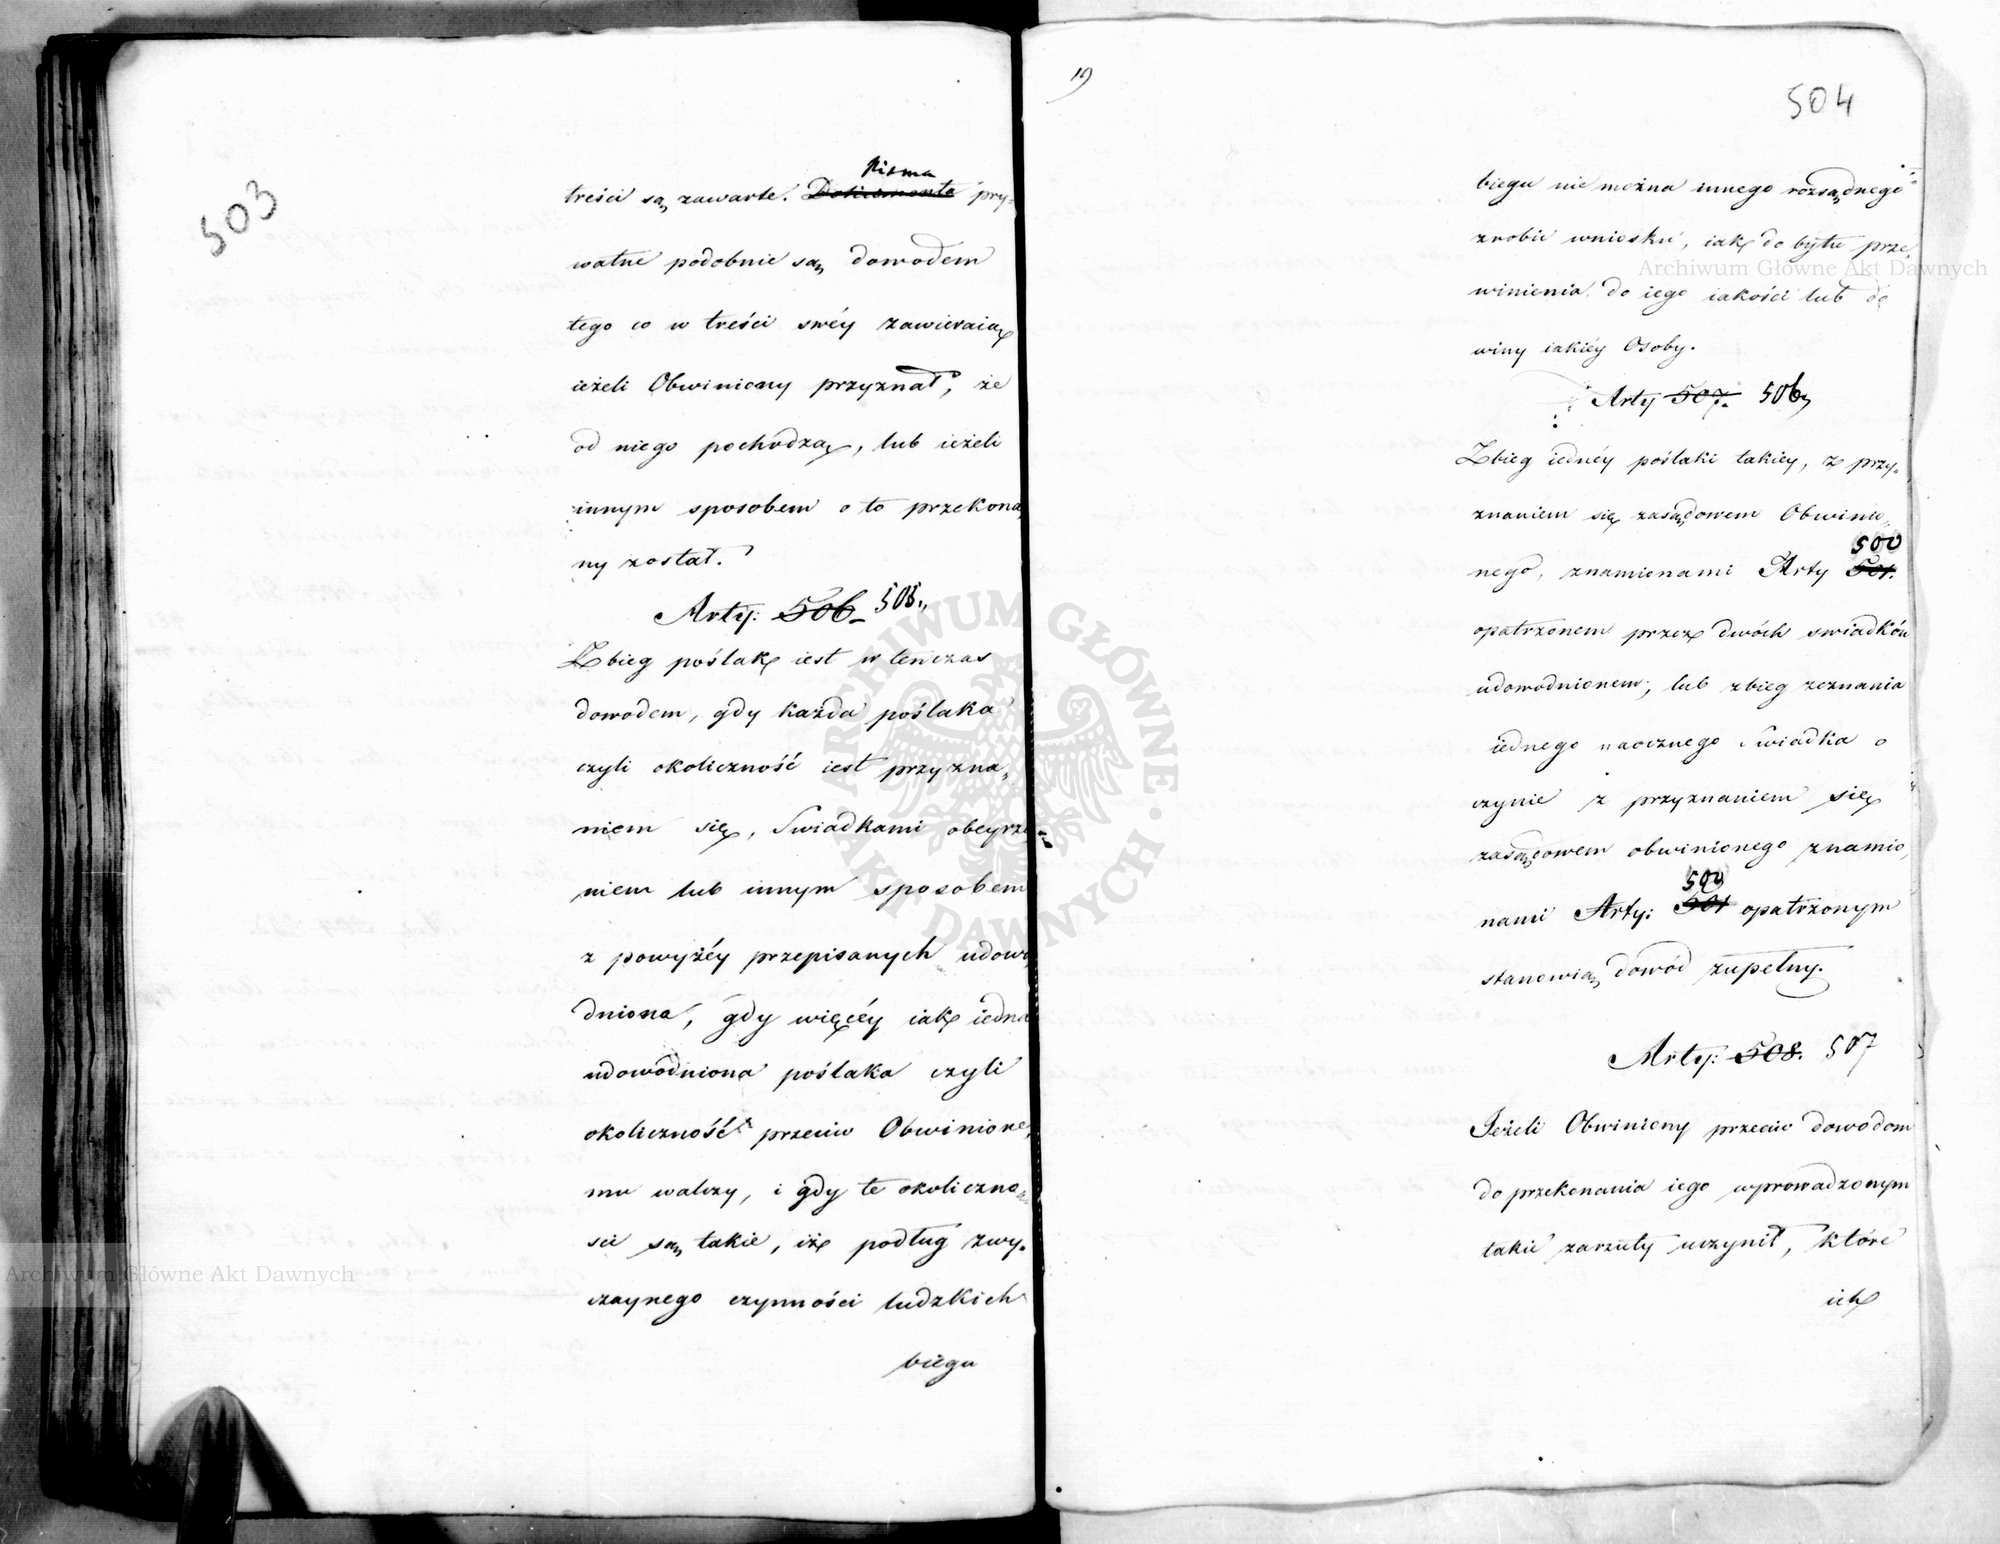 503
Pisma
treści są zawarte. Dokumenta pry„
watne podobnie są dowodem
tego co w treści swéy zawieraią
ieżeli Obwiniony przyznał, że
od niego pochodzą, lub ieżeli
innym sposobem o to przekona„
ny został.
Arty: 506 505.„
Zbieg poślak iest w tenczas
dowodem, gdy każda poślaka
czyli okoliczność iest przyzna„
niem się, Swiadkami obeyrze„
niem lub innym sposobem
z powyżéy przepisanych udowo
dniona, gdy więcéy iak iedna
udowodniona poślaka czyli
okoliczność przeciw Obwinione„
mu walczy, i gdy te okoliczno„
sci są takie, iż podług zwy„
czaynego czynności ludzkich
biegu
19
504
biegu nie można innego rozsądnego
zrobić wniosku, iak do bytu prze„
winienia do iego iakości lub do
winy iakiéy Osoby.
Arty 507. 506„
Zbieg iednéy poślaki takiey, z przy„
znaniem się zasądowem Obwinio„
500
nego, znamionami Arty 501.
opatrzonem przez dwóch swiadków
udowodnionem, lub zbieg zeznania
iednego naocznego Swiadka o
czynie z przyznaniem się
zasądowem obwinionego znamio„
500
nami Arty: 501 opatrzonym
stanowią dowód zupełny.
Arty: 508. 507
Jeżeli Obwiniony przeciw dowodom
do przekonania iego wprowadzonym
takie zarzuty uczynił, które
ich
Archiwum Główne Akt Dawnych
Archiwum Główne Akt Dawnych
ARCHIWUM GŁÓWNE · AKT DAWNYCH ·